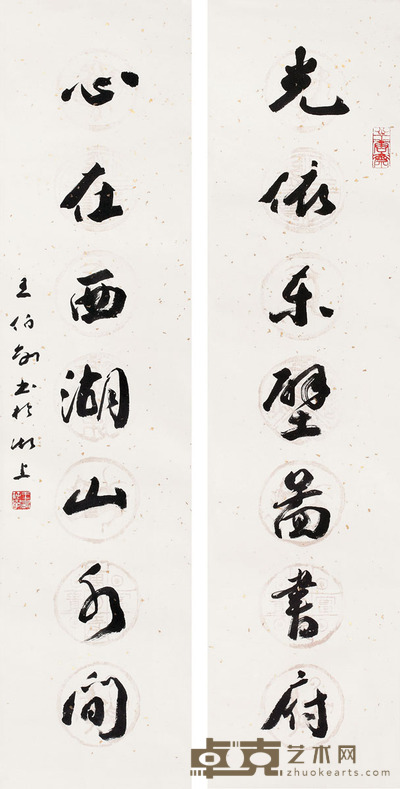 光依东壁图书府
心在西湖山水间
王伯敏书于湖上
卓克艺术网
zhuokearts.com